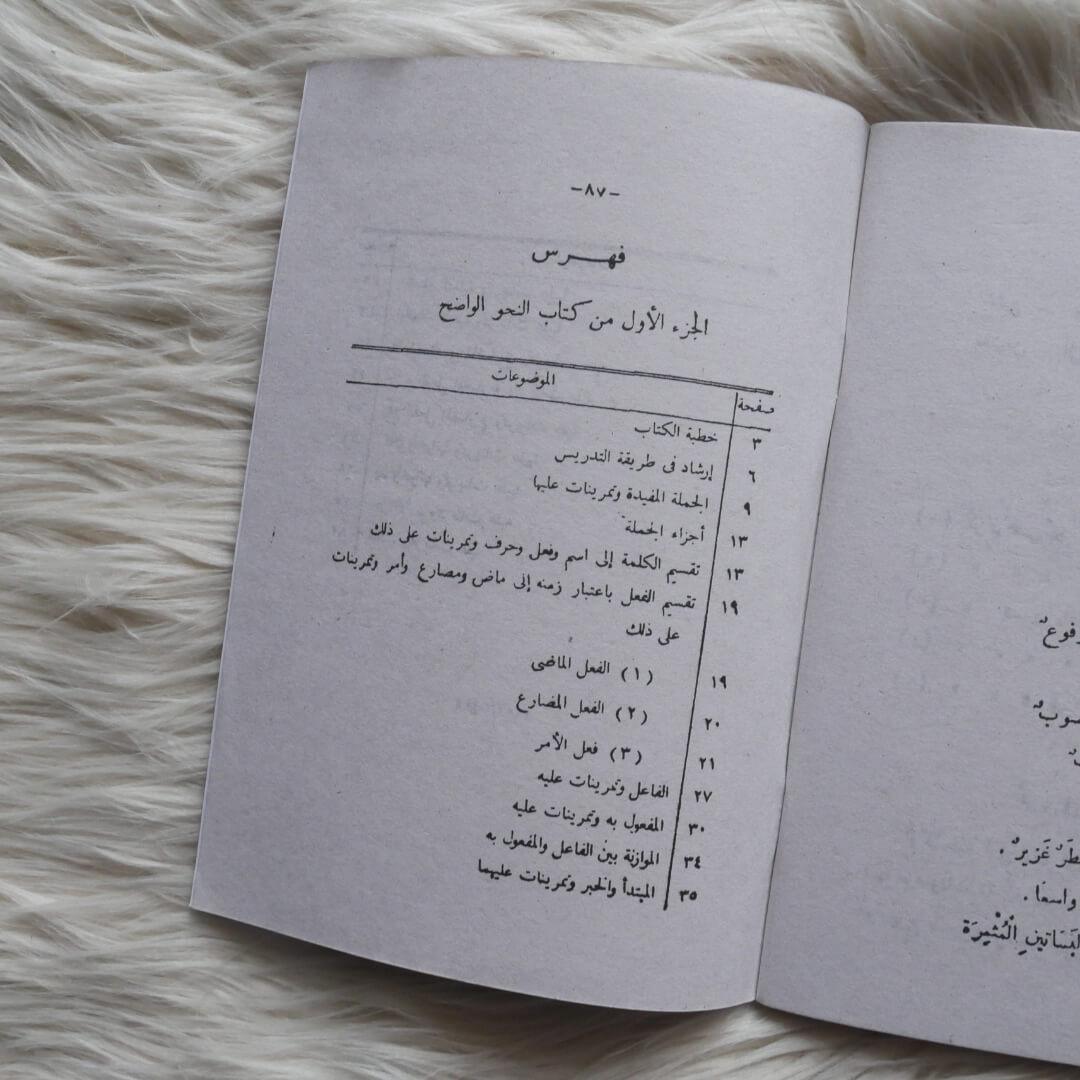 -٨٧-
فهرس
الجزء الأول من كتاب النحو الواضح
صفحة الموضوعات
٣ خطبة الكتاب
٦ إرشاد فى طريقة التدريس
٩ الجملة المفيدة وتمرينات عليها
١٣ أجزاء الجملة
١٣ تقسيم الكلمة إلى اسم وفعل وحرف وتمرينات على ذلك
١٩ تقسيم الفعل باعتبار زمنه إلى ماض ومضارع وأمر وتمرينات
على ذلك
١٩ (١) الفعل الماضى
٢٠ (٢) الفعل المضارع
٢١ (٣) فعل الأمر
٢٧ الفاعل وتمرينات عليه
٣٠ المفعول به وتمرينات عليه
٣٤ الموازنة بين الفاعل والمفعول به
٣٥ المبتدأ والخبر وتمرينات عليهما
غَزيرٌ .
واسعًا .
الْمُثْمِرَة